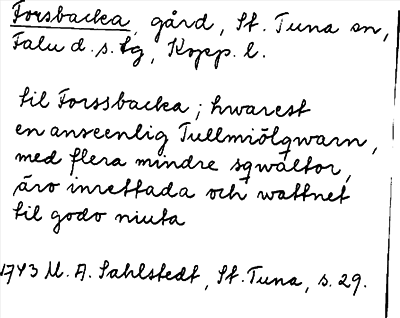 Forsbacka, gård, St. Tuna sn,
Falu d.s. tg, Kopp. l.
til Forssbacka; hwarest
en anseenlig Tullmiölqwarn,
med flera mindre sqwaltor,
äro inrettada och wattnet
til godo niuta
1743 M. A. Sahlstedt, St. Tuna, s. 29.